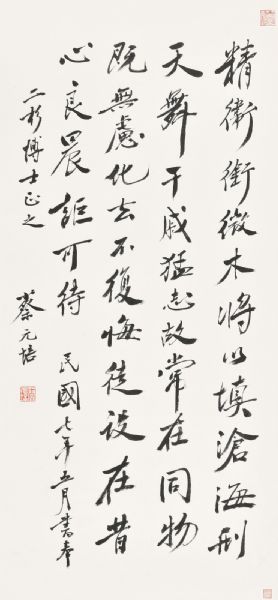 精衛銜微木將以填滄海刑
天舞干戚猛志故常在同物
既無慮化去不復悔徒設在昔
心良晨詎可待 民國七年五月書奉
二杉博士正之
蔡元培